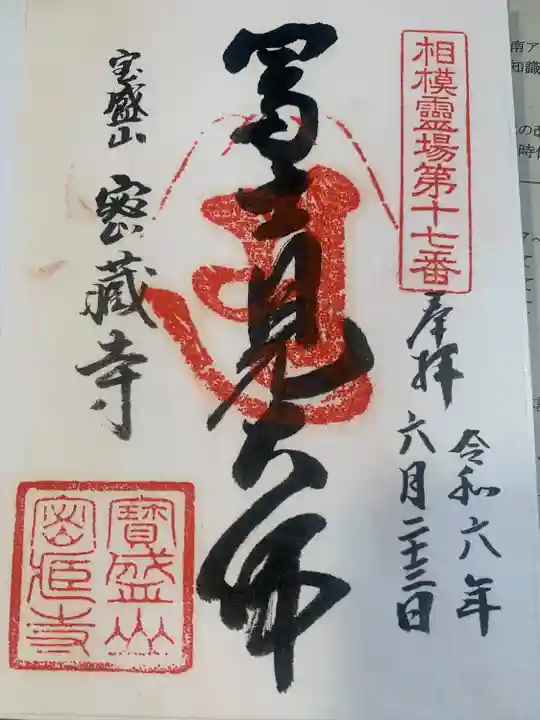 相模霊場第十七番
奉拝
令和六年
六月二十三日
富士見大師
宝盛山
密蔵寺
寳盛山
密蔵寺
南ア
知識